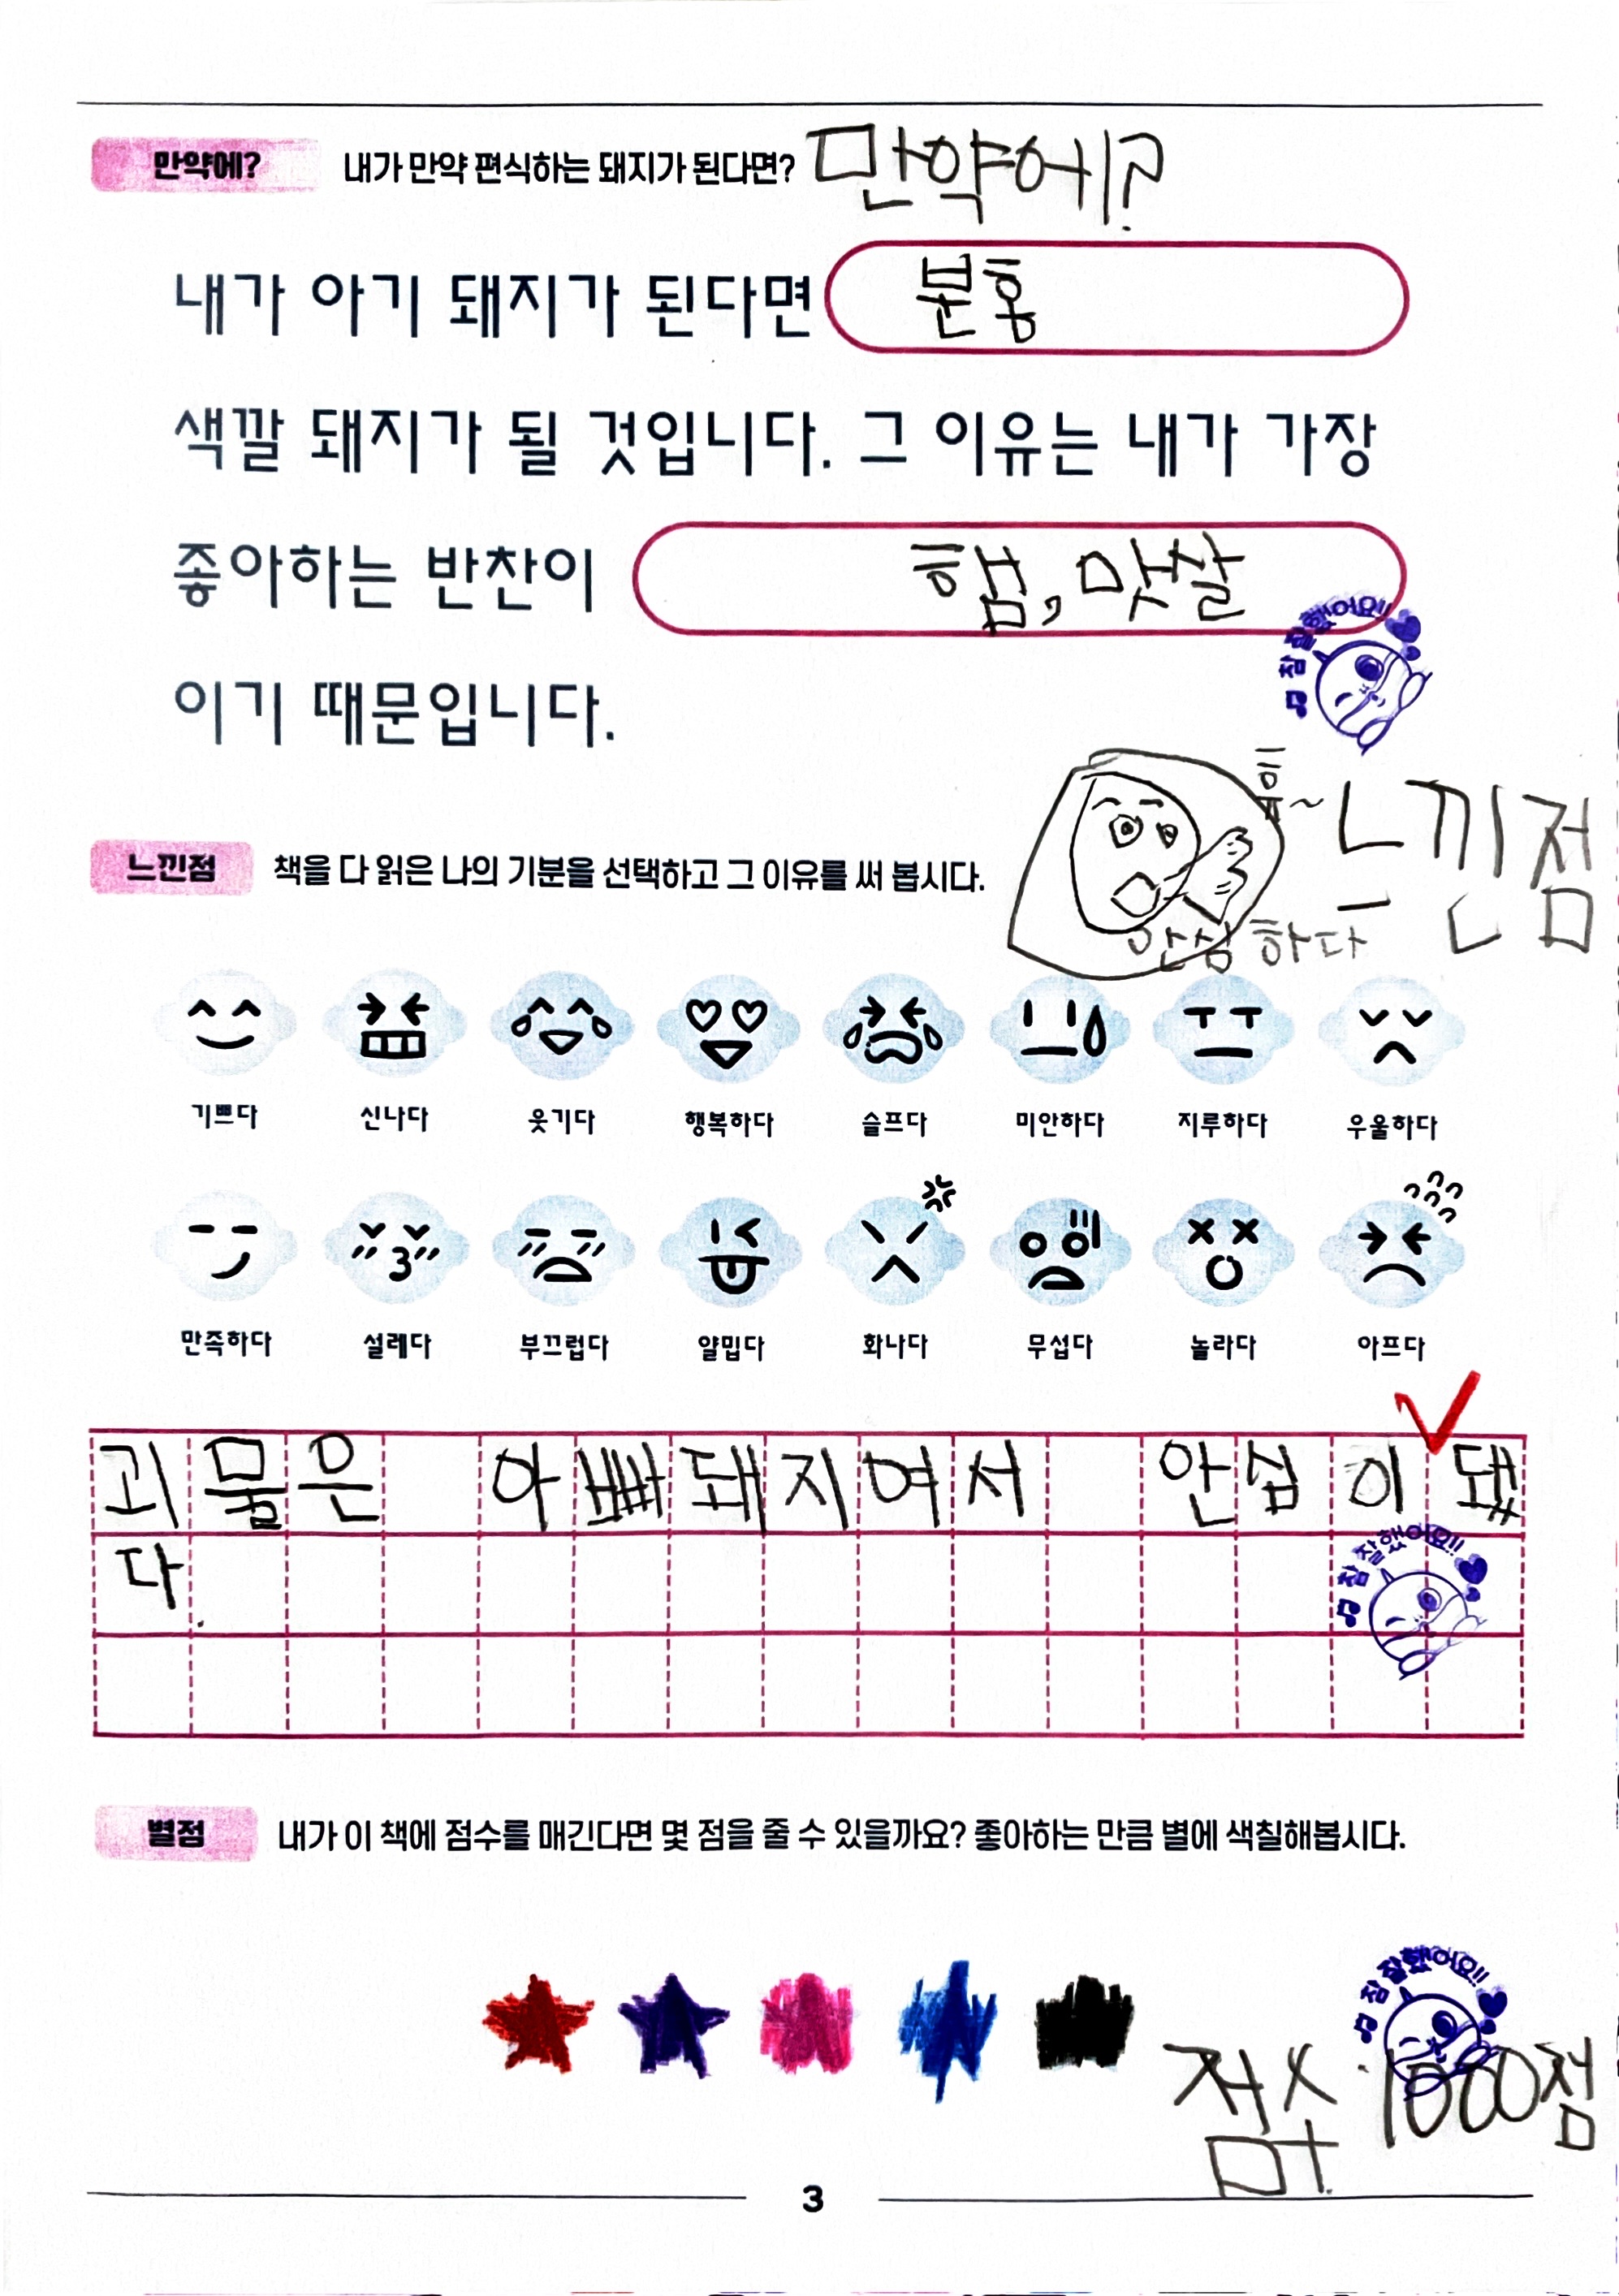 만약에? 내가 만약 편식하는 돼지가 된다면? 만약에?
내가 아기 돼지가 된다면 분홍
색깔 돼지가 될 것입니다. 그 이유는 내가 가장
좋아하는 반찬이 햄, 맛살
참 잘했어요!!
이기 때문입니다.
휴~
느낀점 책을 다 읽은 나의 기분을 선택하고 그 이유를 써 봅시다. 느낀점
안심하다
기쁘다 신나다 웃기다 행복하다 슬프다 미안하다 지루하다 우울하다
만족하다 설레다 부끄럽다 얄밉다 화나다 무섭다 놀라다 아프다
괴물은 아빠돼지여서 안심이됐
다.
참 잘했어요!!
별점 내가 이 책에 점수를 매긴다면 몇 점을 줄 수 있을까요? 좋아하는 만큼 별에 색칠해봅시다.
참 잘했어요!!
점수 1000점
3